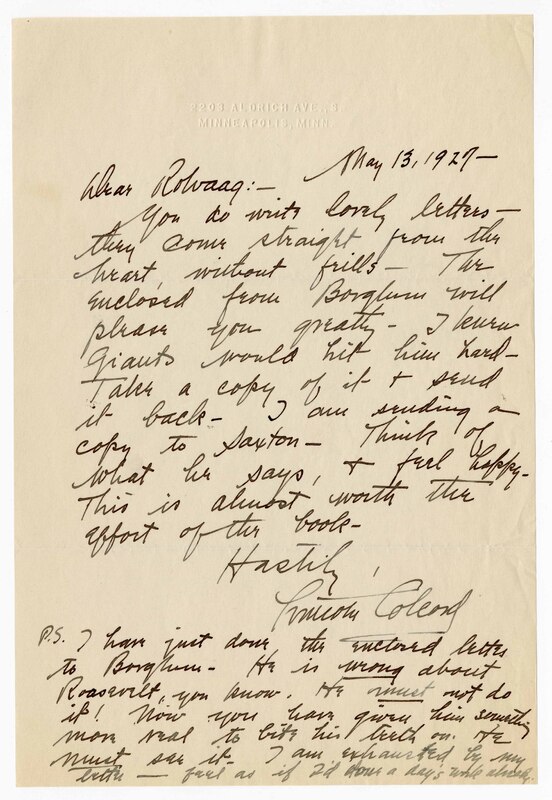 2203 ALDRICH AVE., S.
MINNEAPOLIS, MINN.
May 13, 1927—
Dear Rolvaag:—
You do write lovely letters—
they come straight from the
heart, without frills— The
enclosed from Borglum will
please you greatly— I knew
Giants would hit him hard—
Take a copy of it & send
it back— I am sending a
copy to Saxton— Think of
what he says, & feel happy—
This is almost worth the
effort of the book—
Hastily,
Lincoln Colcord
P.S. I have just done the enclosed letter
to Borglum— He is wrong about
Roosevelt, you know. He must not do
it! Now you have given him something
more real to bite his teeth on. He
must see it— I am exhausted by my
letter — feel as if I'd done a day's work already.